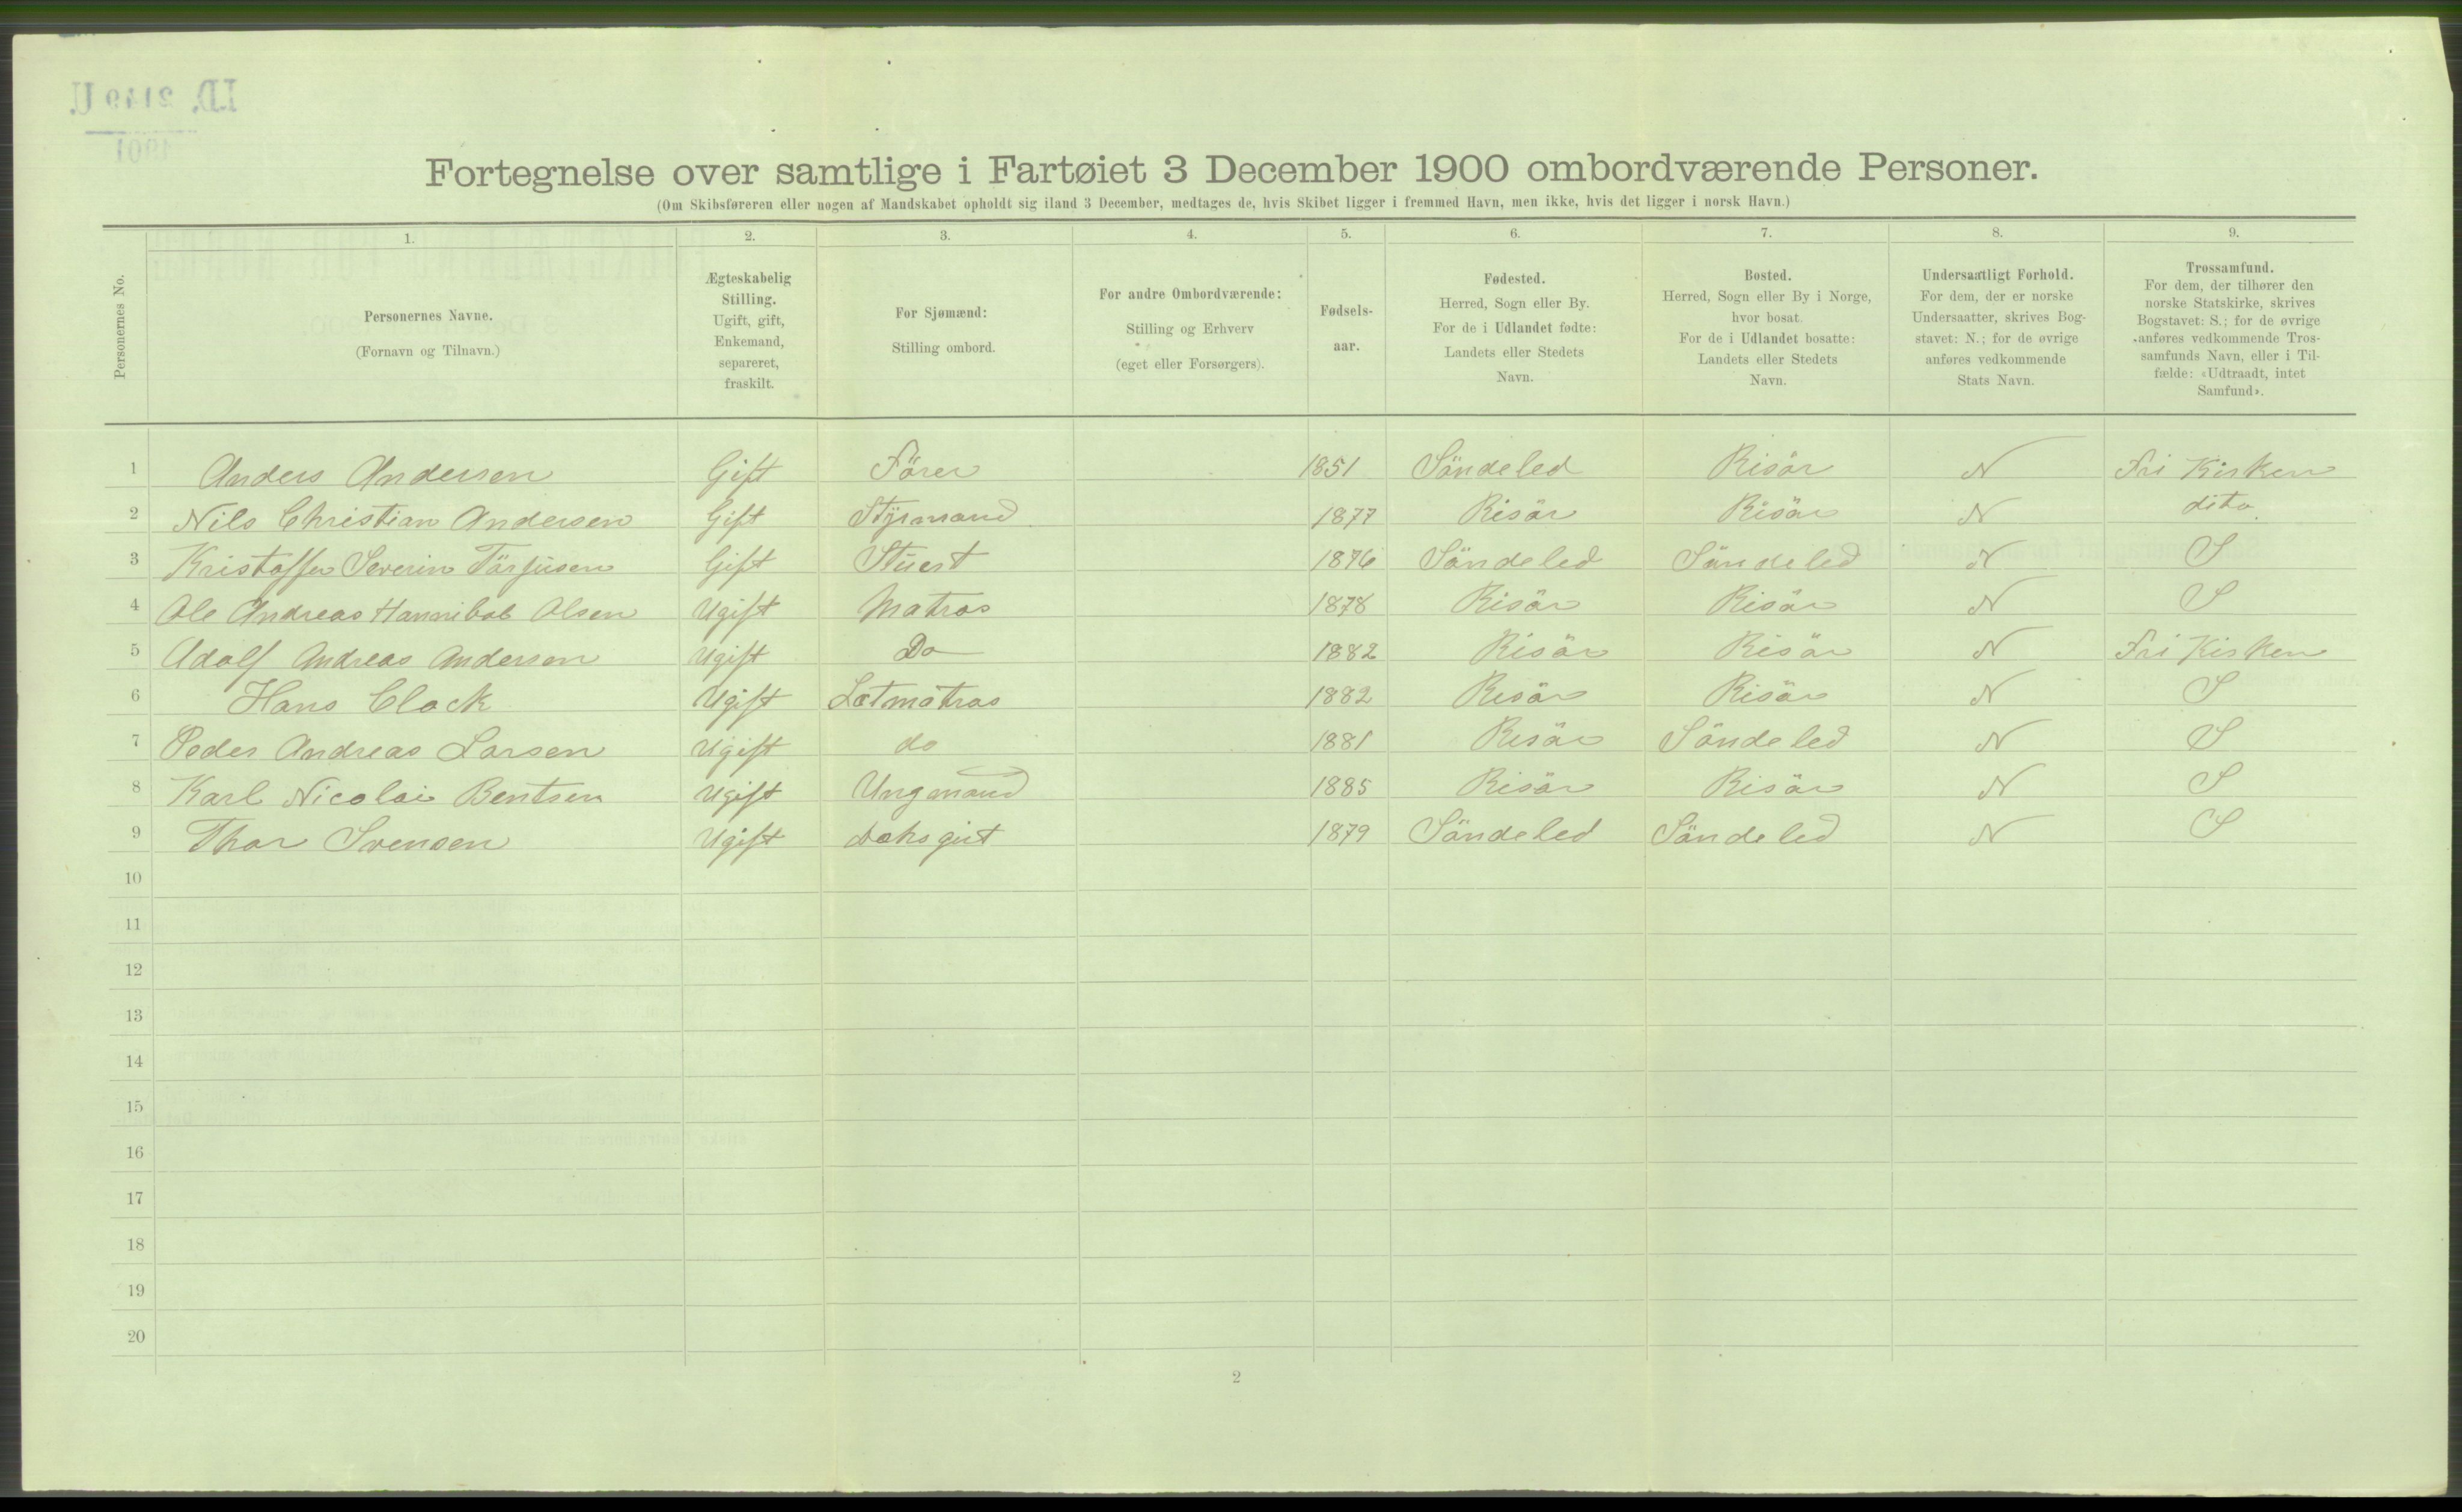 I.D. 2149 U.
1901
Fortegnelse over samtlige i Fartøiet 3 December 1900 ombordværende Personer.
(Om Skibsføreren eller nogen af Mandskabet opholdt sig iland 3 December, medtages de, hvis Skibet ligger i fremmed Havn, men ikke, hvis det ligger i norsk Havn.)
1. 2. 3. 4. 5. 6. 7. 8. 9.
Personernes No.
Personernes Navne.
(Fornavn og Tilnavn.)
Ægteskabelig
Stilling.
Ugift, gift,
Enkemand,
separeret,
fraskilt.
For Sjømænd:
Stilling ombord.
For andre Ombordværende:
Stilling og Erhverv
(eget eller Forsørgers).
Fødsels-
aar.
Fødested.
Herred, Sogn eller By.
For de i Udlandet fødte:
Landets eller Stedets
Navn.
Bosted.
Herred, Sogn eller By i Norge,
hvor bosat.
For de i Udlandet bosatte:
Landets eller Stedets
Navn.
Undersaatligt Forhold.
For dem, der er norske
Undersaatter, skrives Bog-
stavet: N.; for de øvrige
anføres vedkommende
Stats Navn.
Trossamfund.
For dem, der tilhører den
norske Statskirke, skrives
Bogstavet: S.; for de øvrige
anføres vedkommende Tros-
samfunds Navn, eller i Til-
fælde: «Udtraadt, intet
Samfund».
1 Anders Andersen Gift Förer 1851 Söndeled Risör N Fri Kirken
2 Nils Christian Andersen Gift Styrmand 1877 Risör Risör N dito
3 Kristoffer Severin Tärjusen Gift Stuert 1876 Söndeled Söndeled N S
4 Ole Andreas Hannibal Olsen Ugift Matros 1878 Risör Risör N S
5 Adolf Andreas Andersen Ugift Do 1882 Risör Risör N Fri Kirken
6 Hans Clack Ugift Letmatros 1882 Risör Risör N S
7 Peder Andreas Larsen Ugift do 1881 Risör Söndeled N S
8 Karl Nicolai Bentsen Ugift Ungmand 1885 Risör Risör N S
9 Thor Svensen Ugift 1879 Söndeled Söndeled N S
10
11
12
13
14
15
16
17
18
19
20
2